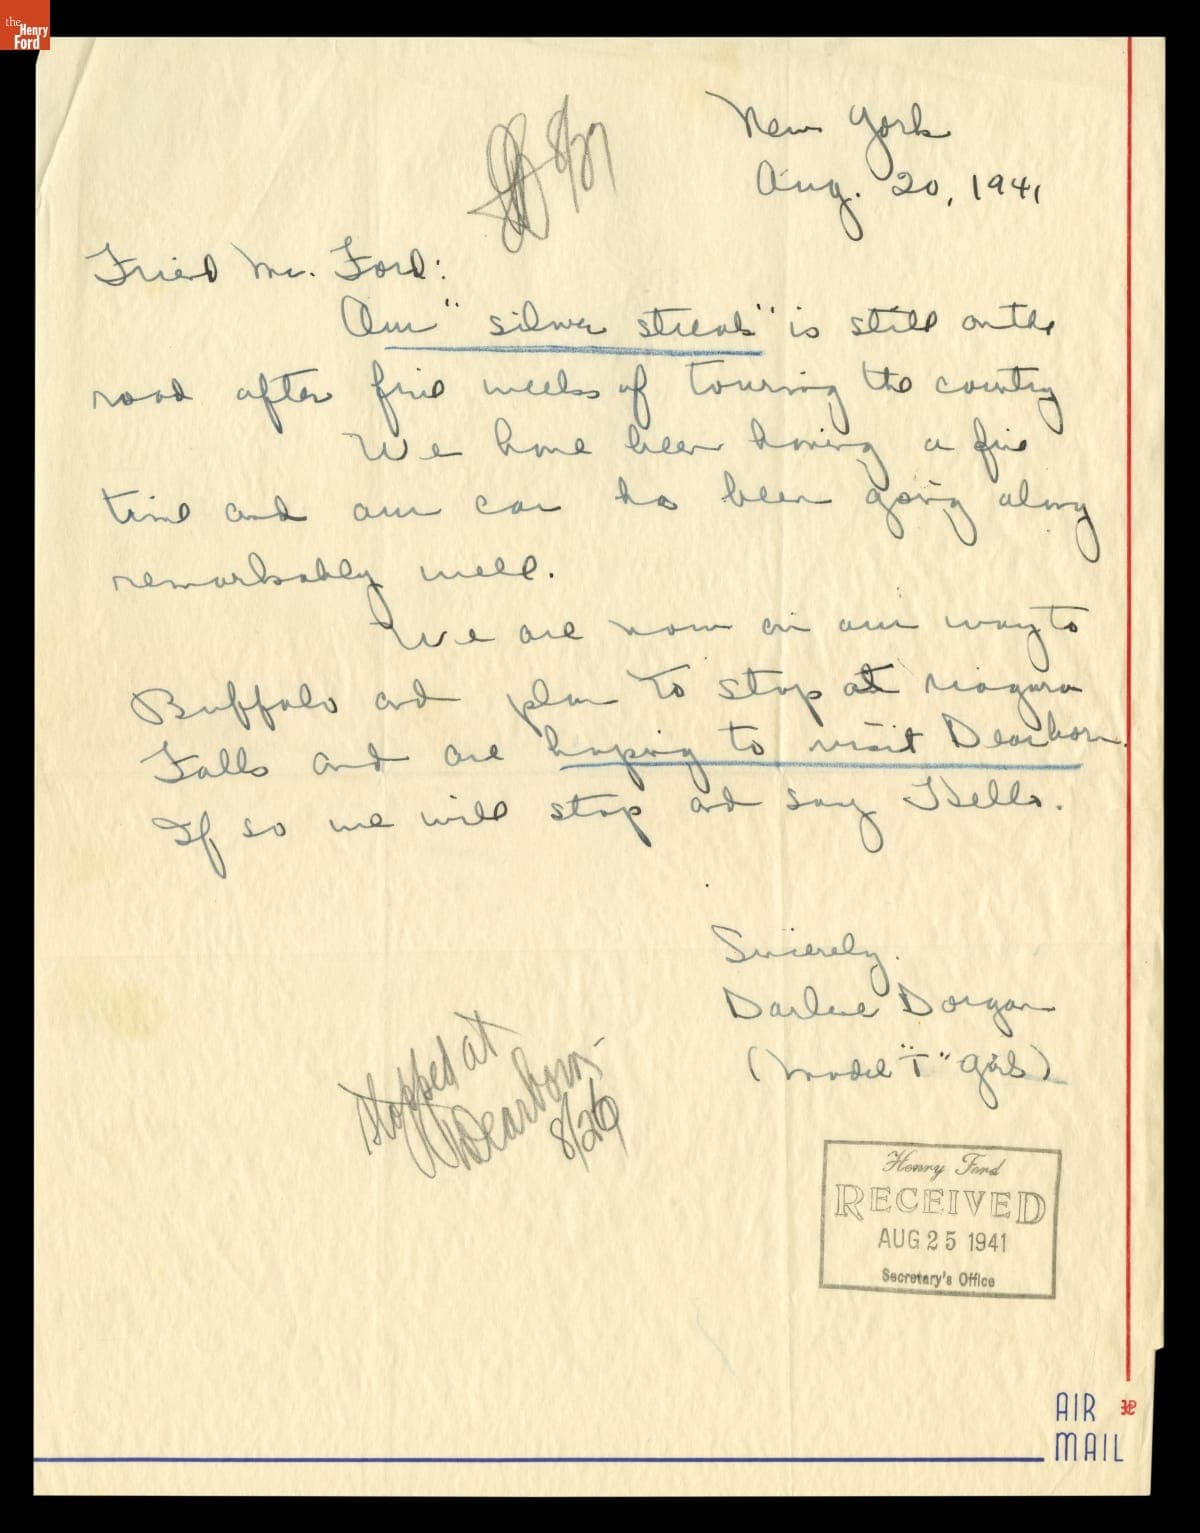 the
Henry
Ford
8/27
New York
Aug. 20, 1941
Friend Mr. Ford:
Our "silver streak" is still on the
road after five weeks of touring the country
We have been having a fine
time and our car has been going along
remarkably well.
We are now on our way to
Buffalo and plan to stop at Niagara
Falls and are hoping to visit Dearborn.
If so we will stop and say Hello.
Sincerely,
Darlene Dorgan
(Model "T" Girls)
Stopped at
Dearborn-
8/26
Henry Ford
RECEIVED
AUG 25 1941
Secretary's Office
AIR
MAIL